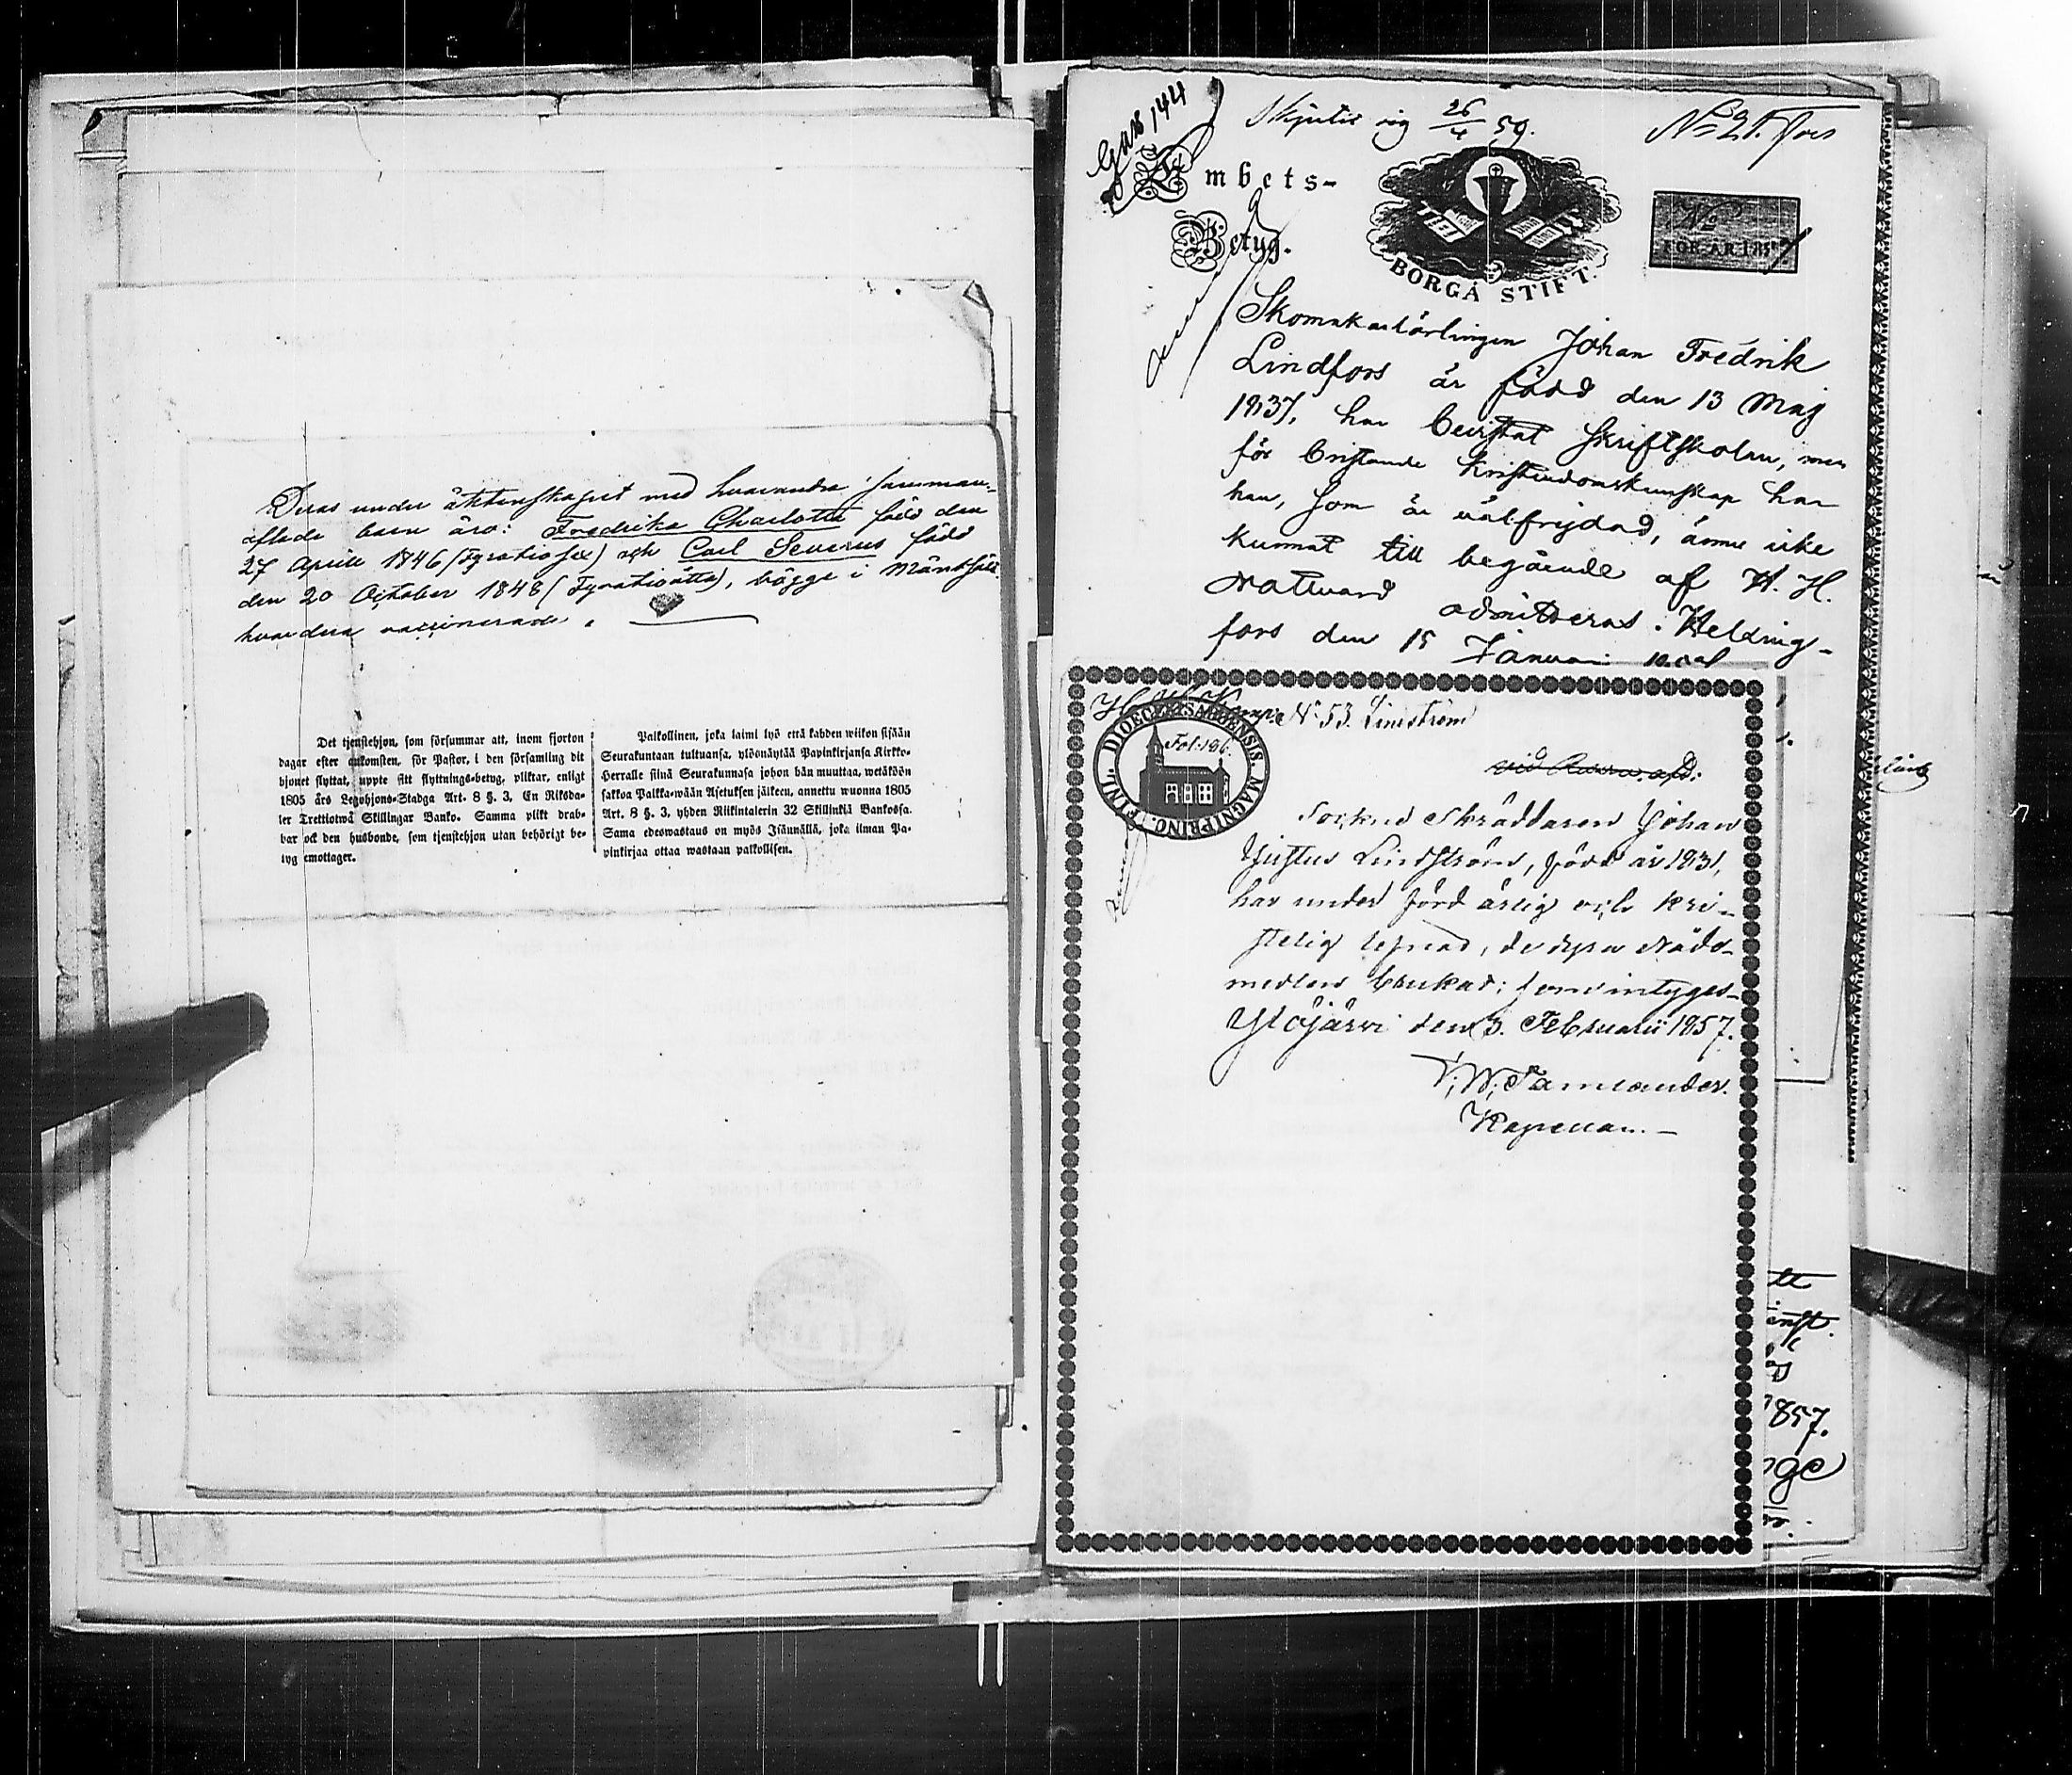 Deras under äktenskapet med hvarandra samman-
aflade barn äro: Fredrika Charlotta född den
27 Aprill 1846 (Fyratiosex) och Carl Severus född
den 20 October 1848 (Fyratioåtta), bägge i Mäntsälä
hvardera vaccinerade.
Det tjenstehjon, som försummar att, inom fjorton
dagar efter ankomsten, för Pastor, i den församling dit
hjonet flyttat, uppte sitt flyttnings-betyg, pliktar, enligt
1805 års Legohjons-Stadga Art. 8 §. 3, En Riksda-
ler Trettiotwå Skillingar Banko. Samma plikt drab-
bar ock den husbonde, som tjenstehjon utan behörigt be-
tyg emottager.
Palkollinen, joka laimi lyö että kahden wiikon sisään
Seurakuntaan tultuansa, ylösnäytää Papinkirjansa Kirkko-
Herralle siinä Seurakunnasa johon hän muuttaa, wetäköön
sakkoa Palkka-wään Asetuksen jälkeen, annettu wuonna 1805
Art. 8 §. 3, yhden Riikintalerin 32 Skillinkiä Bankossa.
Sama edeswastaus on myös Isännällä, joka ilman Pa-
pinkirjaa ottaa wastaan palkollisen.
Gas 144
26/4 59.
No 21.
Embets-
Betyg.
BORGÅ STIFT
No
FÖR ÅR 1857
Skomakarlärlingen Johan Fredrik
Lindfors är född den 13 Maj
1837, har bevistat skriftskolan, men
för bristande kristendomskunskap har
han, som är välfrejdad, ännu icke
kunnat till begående af H. H.
Nattvard admitteras. Helsing-
fors den 15 Januari
No 53. Lindström
DIOECESIS ABOENSIS. MAGNI PRINC. FINL.
Fol. 186.
Sockne Skräddaren Johan
Justus Lindström, född år 1831,
har under förd ärlig och kri-
stelig lefnad, de dyra Nåde-
medlen brukat; som intygas.
Ylöjärvi den 3. Februarii 1857.
Kapellan.
1857.